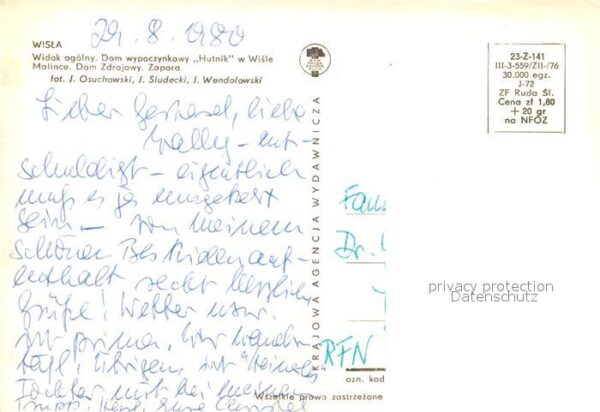 29. 8. 1980
WISŁA
Widok ogólny. Dom wypoczynkowy „Hutnik" w Wiśle
Malince. Dom Zdrojowy. Zapora
fot. J. Osuchowski, J. Siudecki, J. Wendołowski
23-Z-141
III-3-559/ZII-/76
30.000 egz.
J-72
ZF Ruda Śl.
Cena zł 1,80
+ 20 gr
na NFOZ
Lieber Gerhard, liebe
Wally – ent-
schuldigt – eigentlich
muß es ja umgekehrt
sein – von meinem
schönen Beskidenauf-
enthalt recht herzliche
Grüße! Wetter usw.
ist prima, wir wandern
tägl! Übrigens ist
Tochter mit bei meiner
KRAJOWA AGENCJA WYDAWNICZA
Fam
Dr.
RFN
ozn. kod
Wszelkie prawa zastrzeżone
privacy protection
Datenschutz